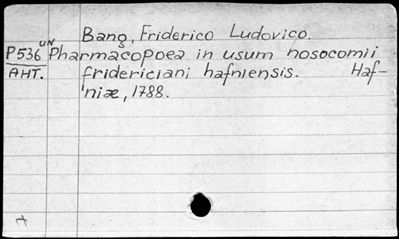 Bang, Friderico Ludovico.
P536 UN Pharmacopoea in usum nosocomii
AHT. fridericiani hafniensis. Haf-
niæ, 1788.